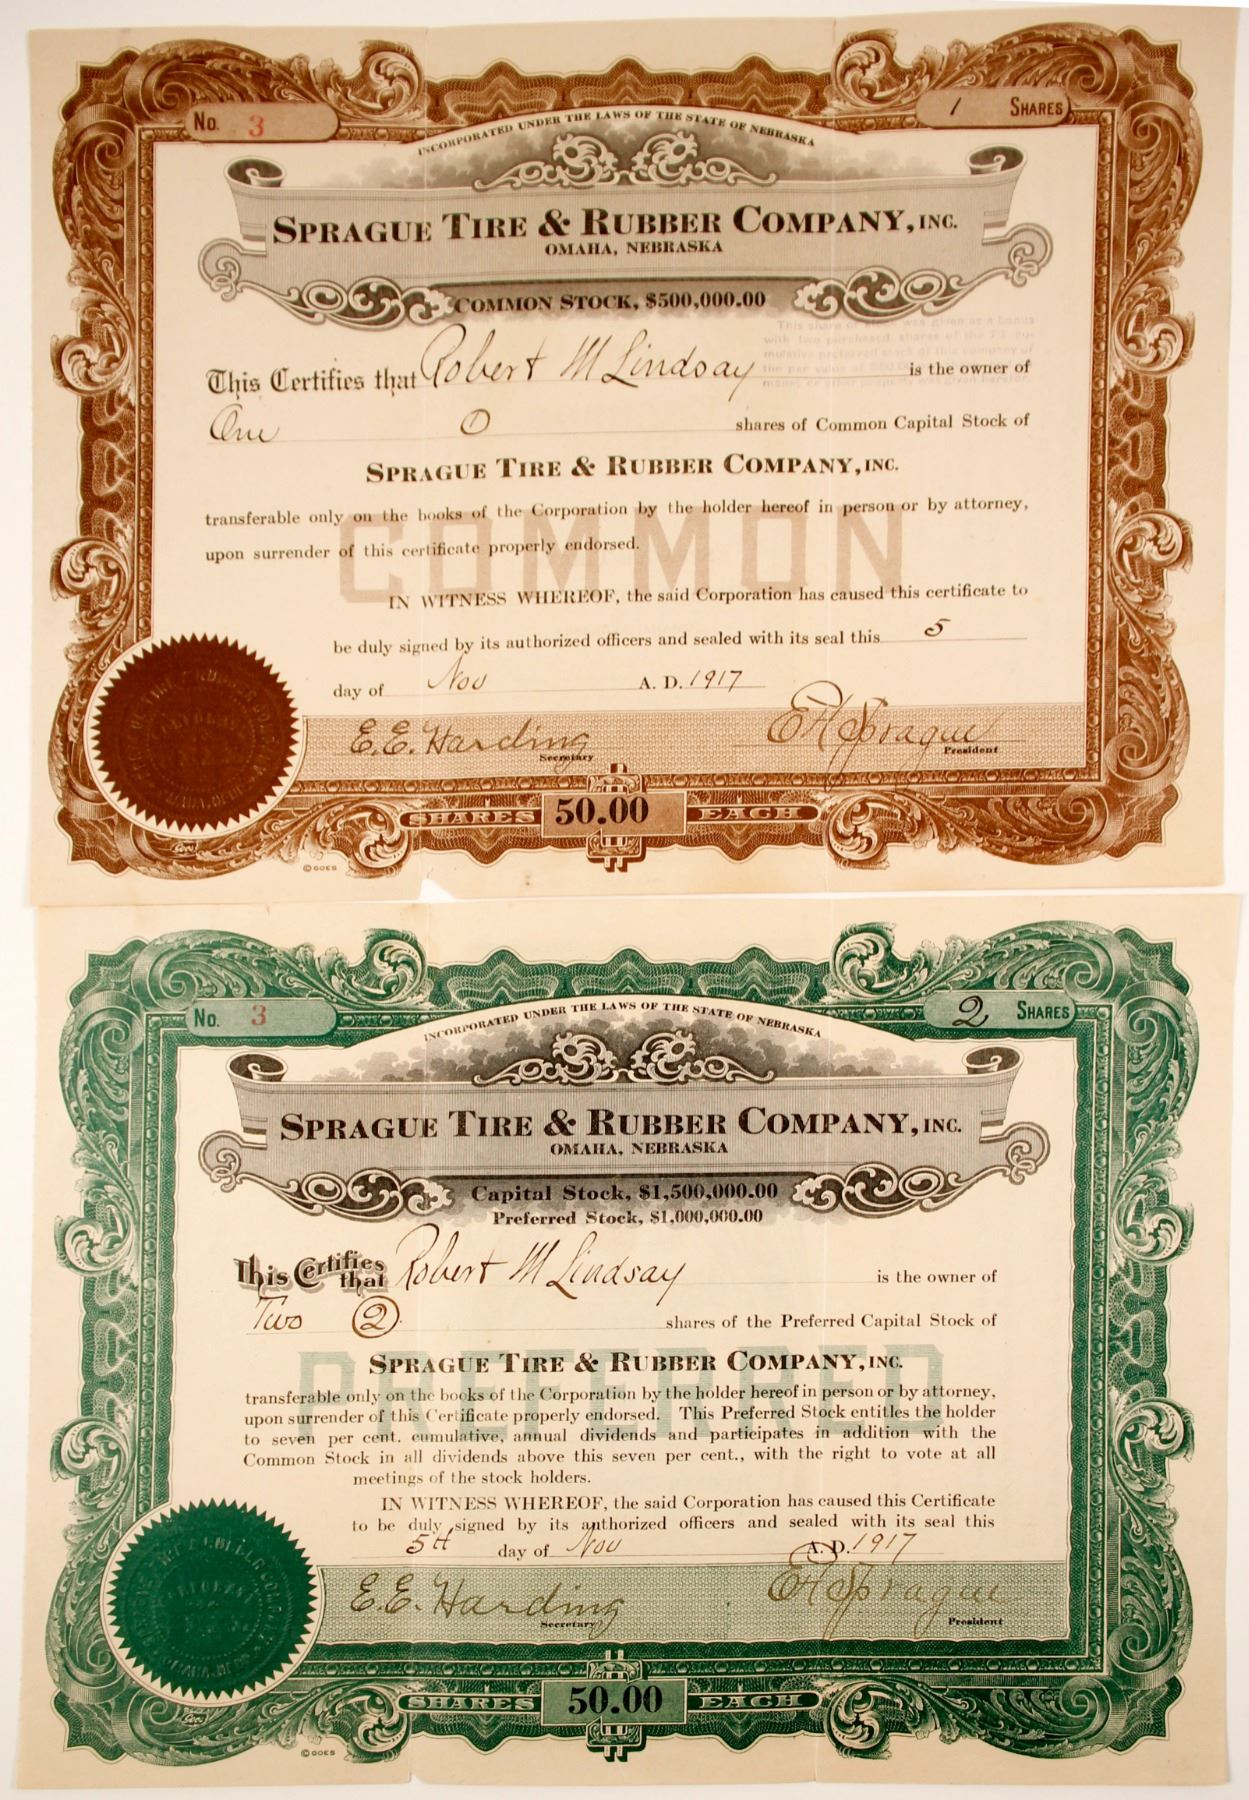 No. 3
1 SHARES
INCORPORATED UNDER THE LAWS OF THE STATE OF NEBRASKA
SPRAGUE TIRE & RUBBER COMPANY, INC.
OMAHA, NEBRASKA
COMMON STOCK, $500,000.00
This share of stock was given as a bonus
with two purchased shares of the 7% cu-
mulative preferred stock of this company of
the par value of
This Certifies that Robert M Lindsay is the owner of
One 1 shares of Common Capital Stock of
SPRAGUE TIRE & RUBBER COMPANY, INC.
transferable only on the books of the Corporation by the holder hereof in person or by attorney,
COMMON
upon surrender of this certificate properly endorsed.
IN WITNESS WHEREOF, the said Corporation has caused this certificate to
be duly signed by its authorized officers and sealed with its seal this 5
day of Nov A. D. 1917
E.E. Harding
Secretary
E H Sprague
President
SHARES 50.00 EACH
©GOES
No. 3
2 SHARES
INCORPORATED UNDER THE LAWS OF THE STATE OF NEBRASKA
SPRAGUE TIRE & RUBBER COMPANY, INC.
OMAHA, NEBRASKA
Capital Stock, $1,500,000.00
Preferred Stock, $1,000,000.00
This Certifies that Robert M Lindsay is the owner of
Two 2 shares of the Preferred Capital Stock of
SPRAGUE TIRE & RUBBER COMPANY, INC.
PREFERRED
transferable only on the books of the Corporation by the holder hereof in person or by attorney,
upon surrender of this Certificate properly endorsed. This Preferred Stock entitles the holder
to seven per cent. cumulative, annual dividends and participates in addition with the
Common Stock in all dividends above this seven per cent., with the right to vote at all
meetings of the stock holders.
IN WITNESS WHEREOF, the said Corporation has caused this Certificate
to be duly signed by its authorized officers and sealed with its seal this
5th day of Nov A. D. 1917
E.E. Harding
Secretary
E H Sprague
President
SHARES 50.00 EACH
©GOES